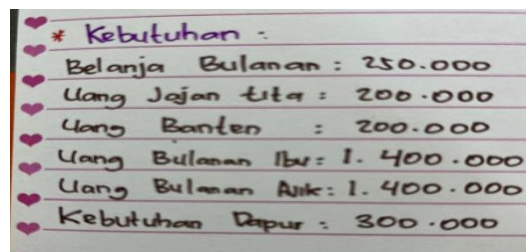 * Kebutuhan :
Belanja Bulanan : 250.000
Uang Jajan tita : 200.000
Uang Banten : 200.000
Uang Bulanan Ibu : 1.400.000
Uang Bulanan Ajik : 1.400.000
Kebutuhan Dapur : 300.000